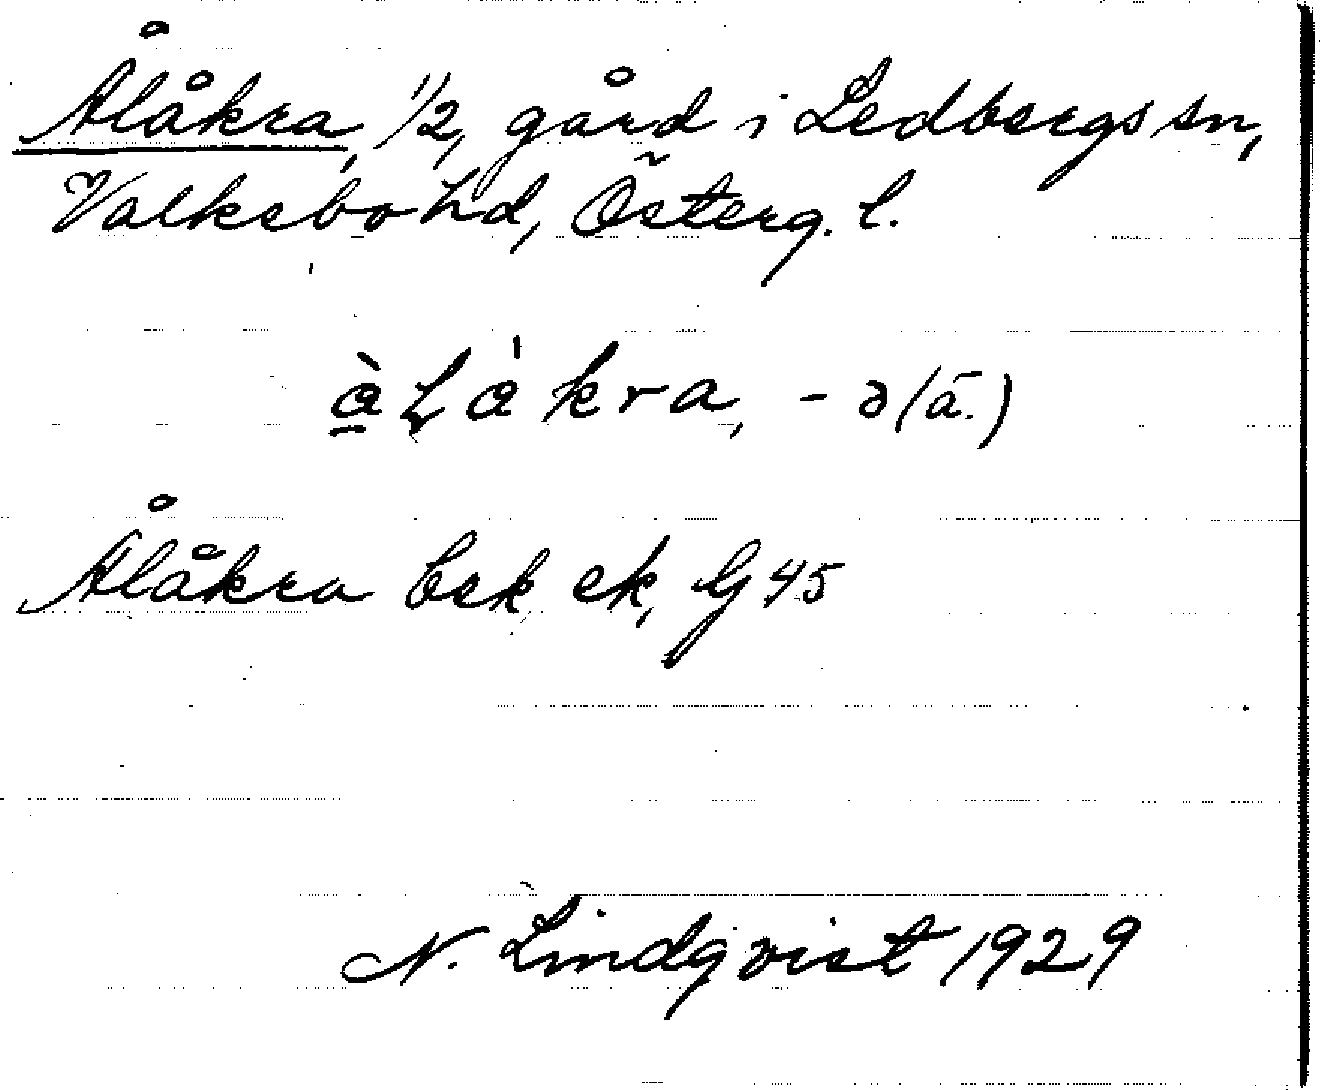 Ålåkra, 1/2, gård i Ledbergs sn,
Valkebo hd, Österg. l.
å̀Låkra, - ə (ä.)
Ålåkra bek ek, G 45
N. Lindqvist 1929